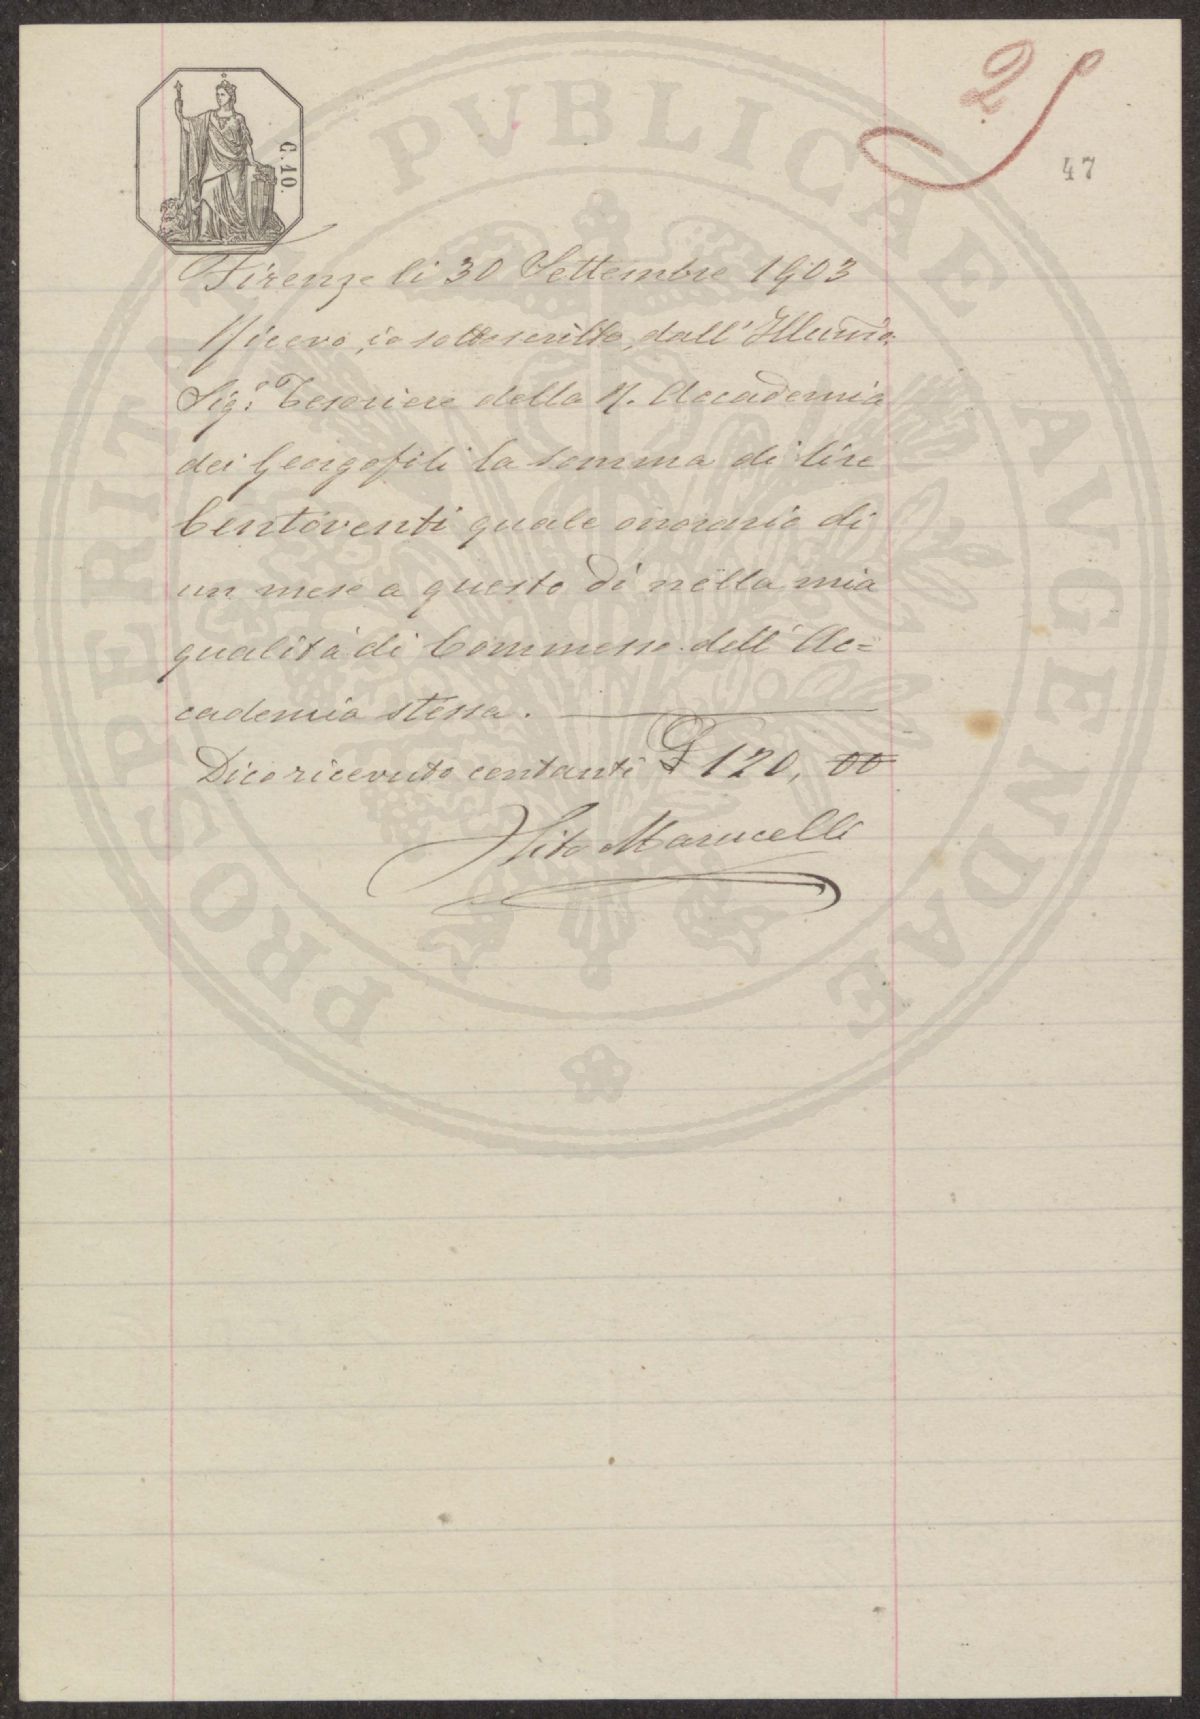 2
47
C. 10.
Firenze li 30 Settembre 1903
Ricevo, io sottoscritto, dall' Illumo.
Sigr. Tesoriere della R. Accademia
dei Georgofili la somma di lire
Centoventi quale onorario di
un mese a questo dì nella mia
qualità di Commesso dell' Ac=
cademia stessa.
Dico ricevuto contanti £ 120, 00
Marucelli
PROSPERITATI PVBLICAE AVGENDAE